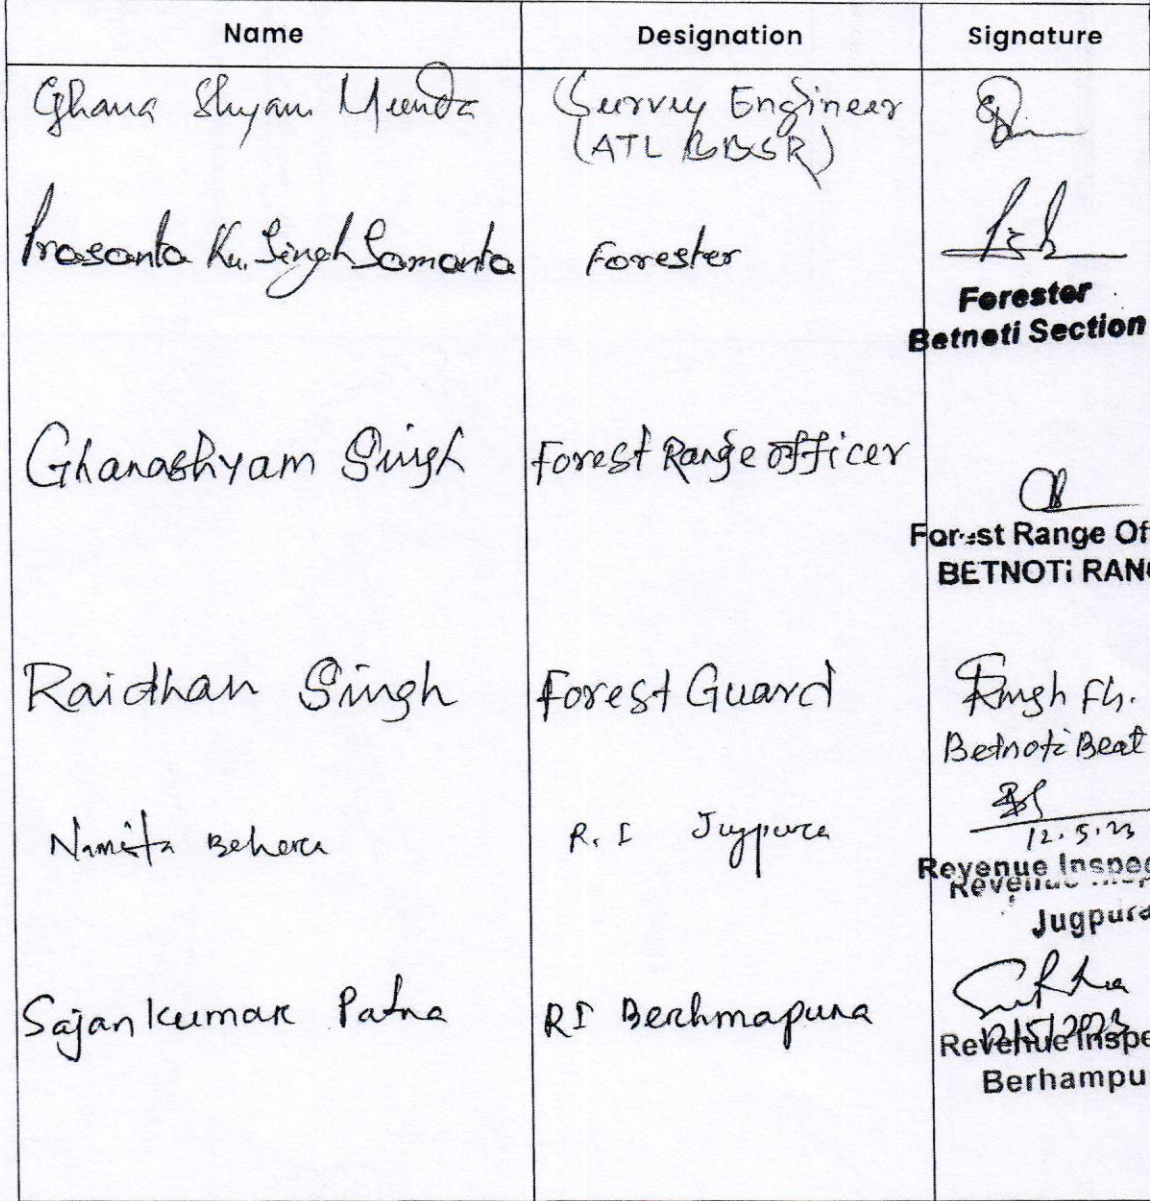 Name Designation Signature
Ghana Shyam Munda Survey Engineer
(ATL BBSR)
Prasanta Ku. Singh Samanta Forester
Forester
Betnoti Section
Ghanashyam Singh Forest Range Officer
Forest Range Of
BETNOTi RANG
Raidhan Singh Forest Guard Singh FG.
Betnoti Beat
Namita Behera R.I Jugpura
12.5.23
Revenue Inspec
Jugpura
Sajan kumar Patra RI Berhmapura
12/5/2023
Revenue Inspe
Berhampu